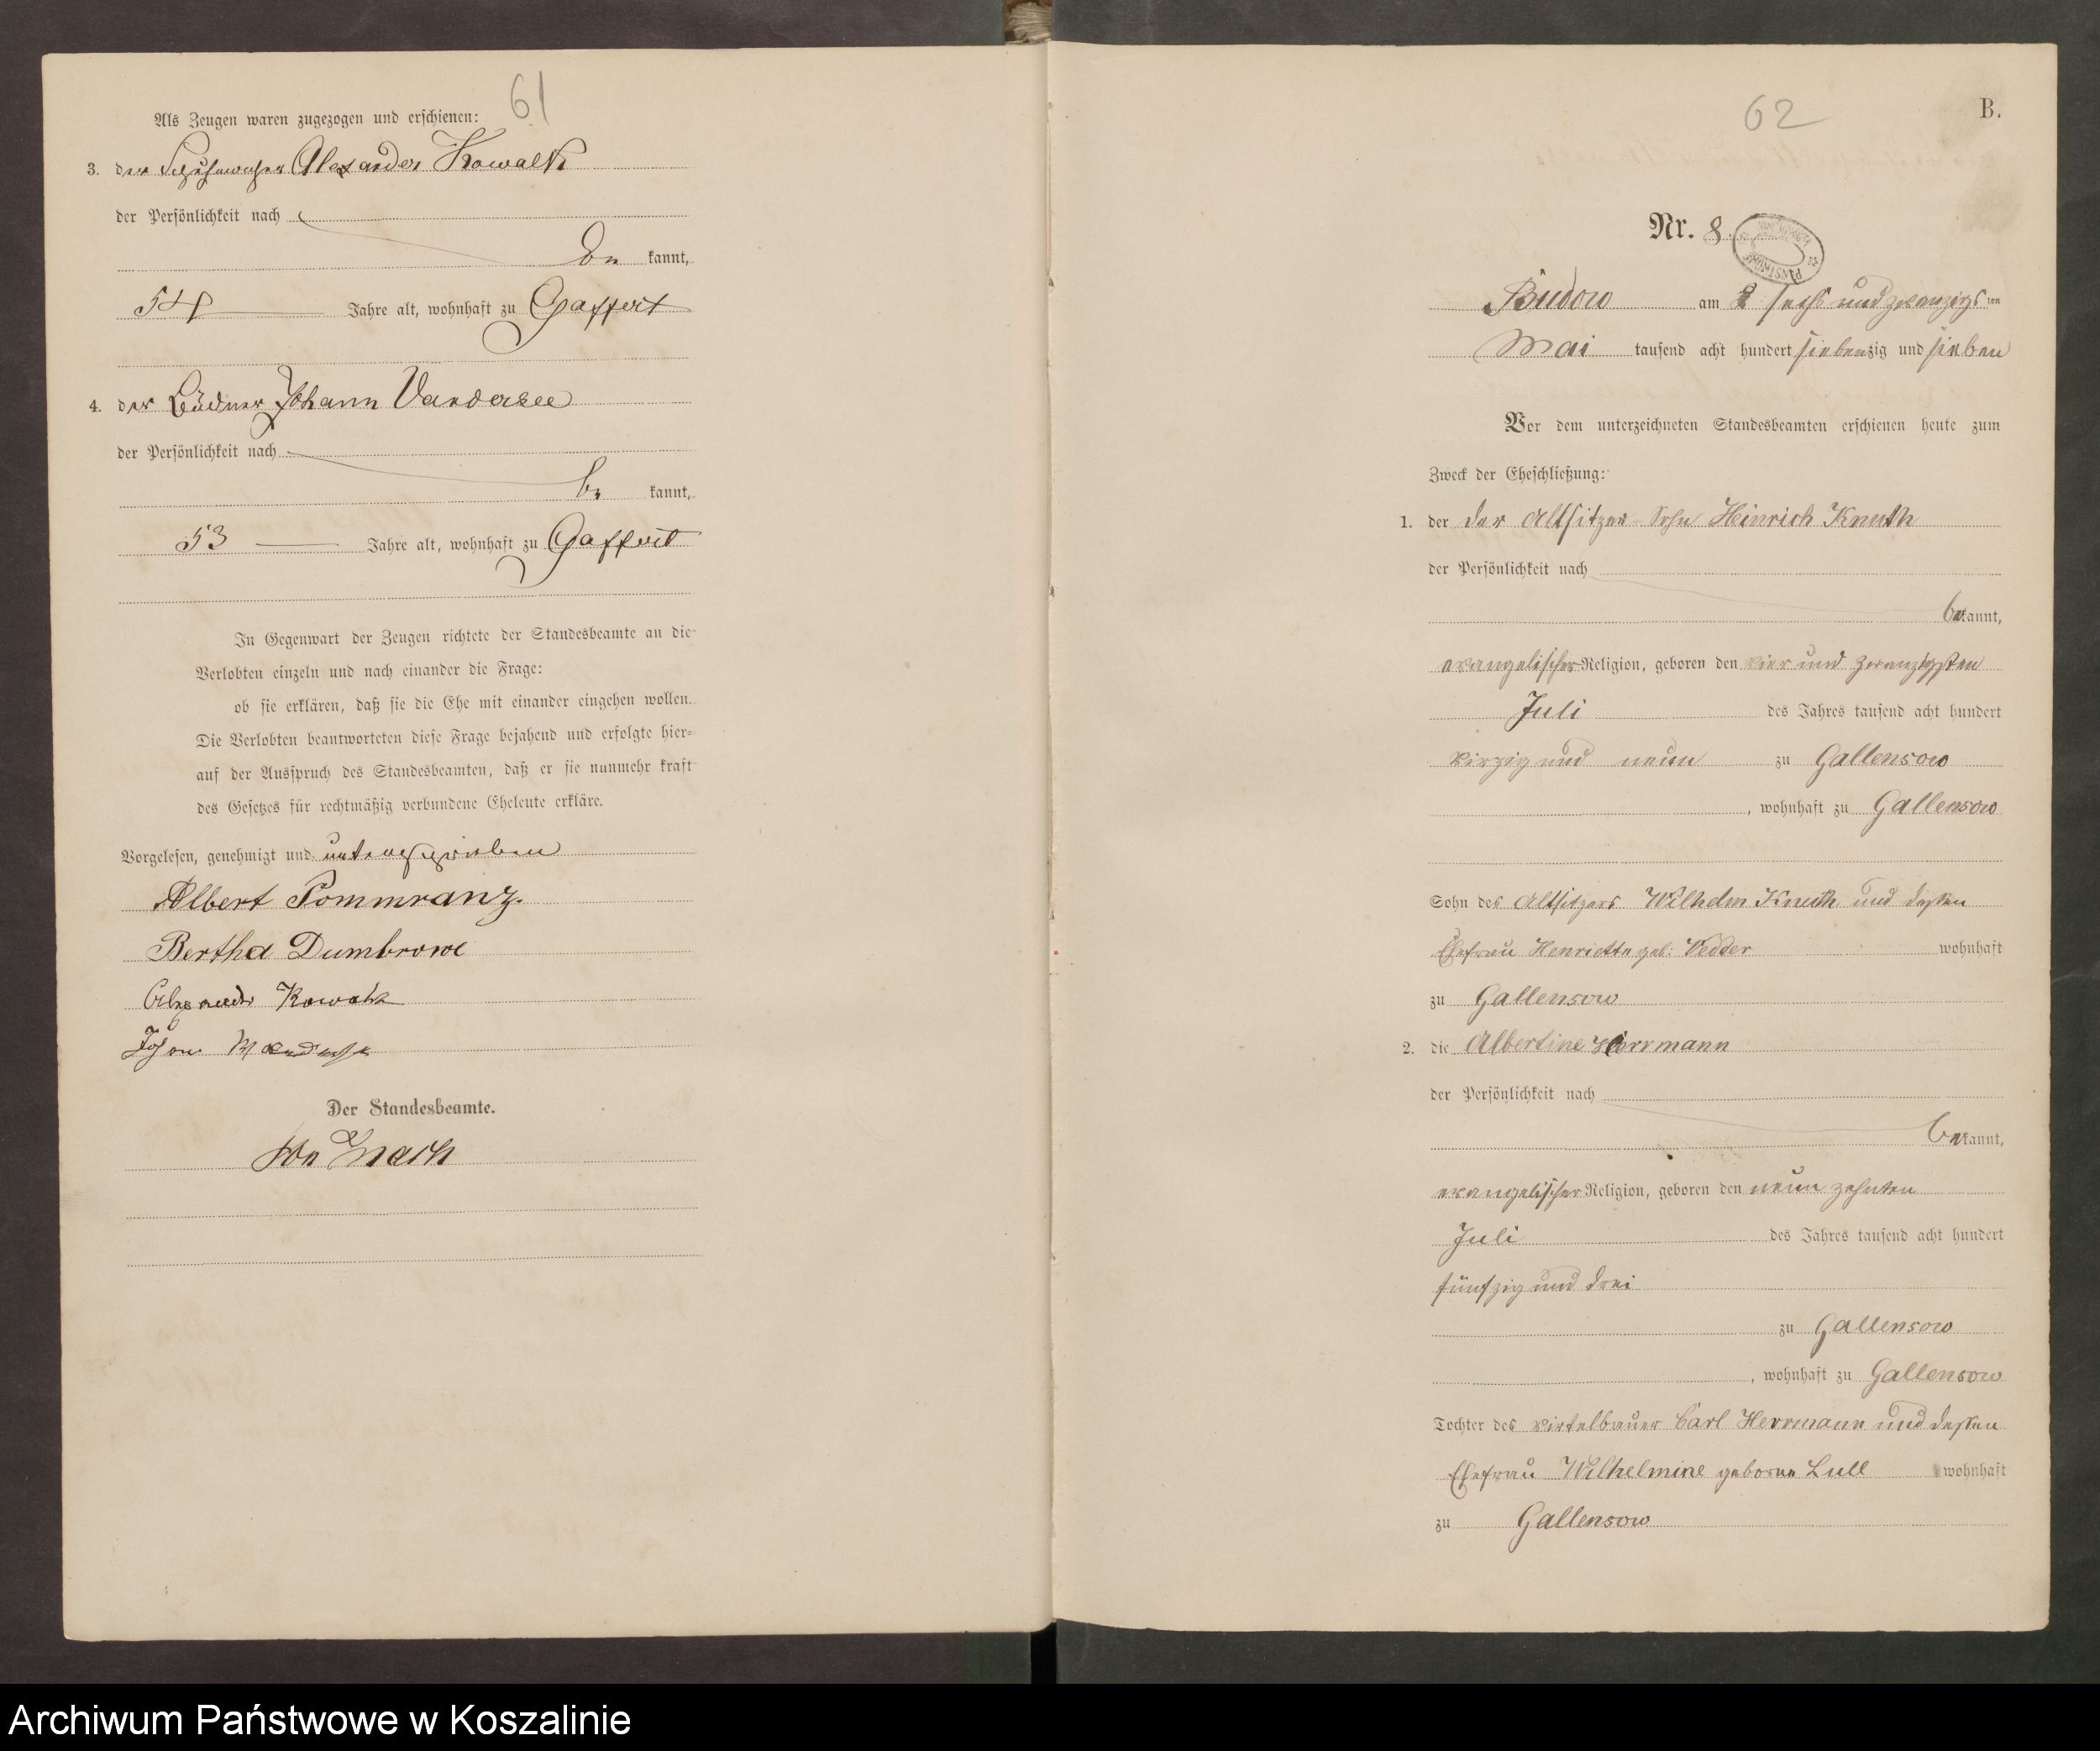 61
Als Zeugen waren zugezogen und erschienen:
3. der Alexander Kowalk
der Persönlichkeit nach
be kannt,
54 Jahre alt, wohnhaft zu Gaffert
4. der Büdner Johann Vandersee
der Persönlichkeit nach
be kannt,
53 Jahre alt, wohnhaft zu Gaffert
In Gegenwart der Zeugen richtete der Standesbeamte an die
Verlobten einzeln und nach einander die Frage:
ob sie erklären, daß sie die Ehe mit einander eingehen wollen.
Die Verlobten beantworteten diese Frage bejahend und erfolgte hier-
auf der Ausspruch des Standesbeamten, daß er sie nunmehr kraft
des Gesetzes für rechtmäßig verbundene Eheleute erkläre.
Vorgelesen, genehmigt und unterschrieben
Albert Pommranz.
Bertha Dumbrowe
Alexander Kowalk
Johann
Der Standesbeamte.
62
B.
Nr. 8.
Budow am sechs und zwanzigs ten
Mai tausend acht hundert siebenzig und sieben
Vor dem unterzeichneten Standesbeamten erschienen heute zum
Zweck der Eheschließung:
1. der der Altsitzer-Sohn Heinrich Knuth
der Persönlichkeit nach
bekannt,
evangelischer Religion, geboren den vier und zwanzigsten
Juli des Jahres tausend acht hundert
vierzig und neun zu Gallensow
, wohnhaft zu Gallensow
Sohn des Altsitzers Wilhelm Knuth und dessen
Ehefrau Henriette geb: Vedder wohnhaft
zu Gallensow
2. die Albertine Herrmann
der Persönlichkeit nach
bekannt,
evangelischer Religion, geboren den neun zehnten
Juli des Jahres tausend acht hundert
fünfzig und drei
zu Gallensow
, wohnhaft zu Gallensow
Tochter des Virtelbauer Carl Herrmann und dessen
Ehefrau Wilhelmine geborne Lull wohnhaft
zu Gallensow
Archiwum Państwowe w Koszalinie